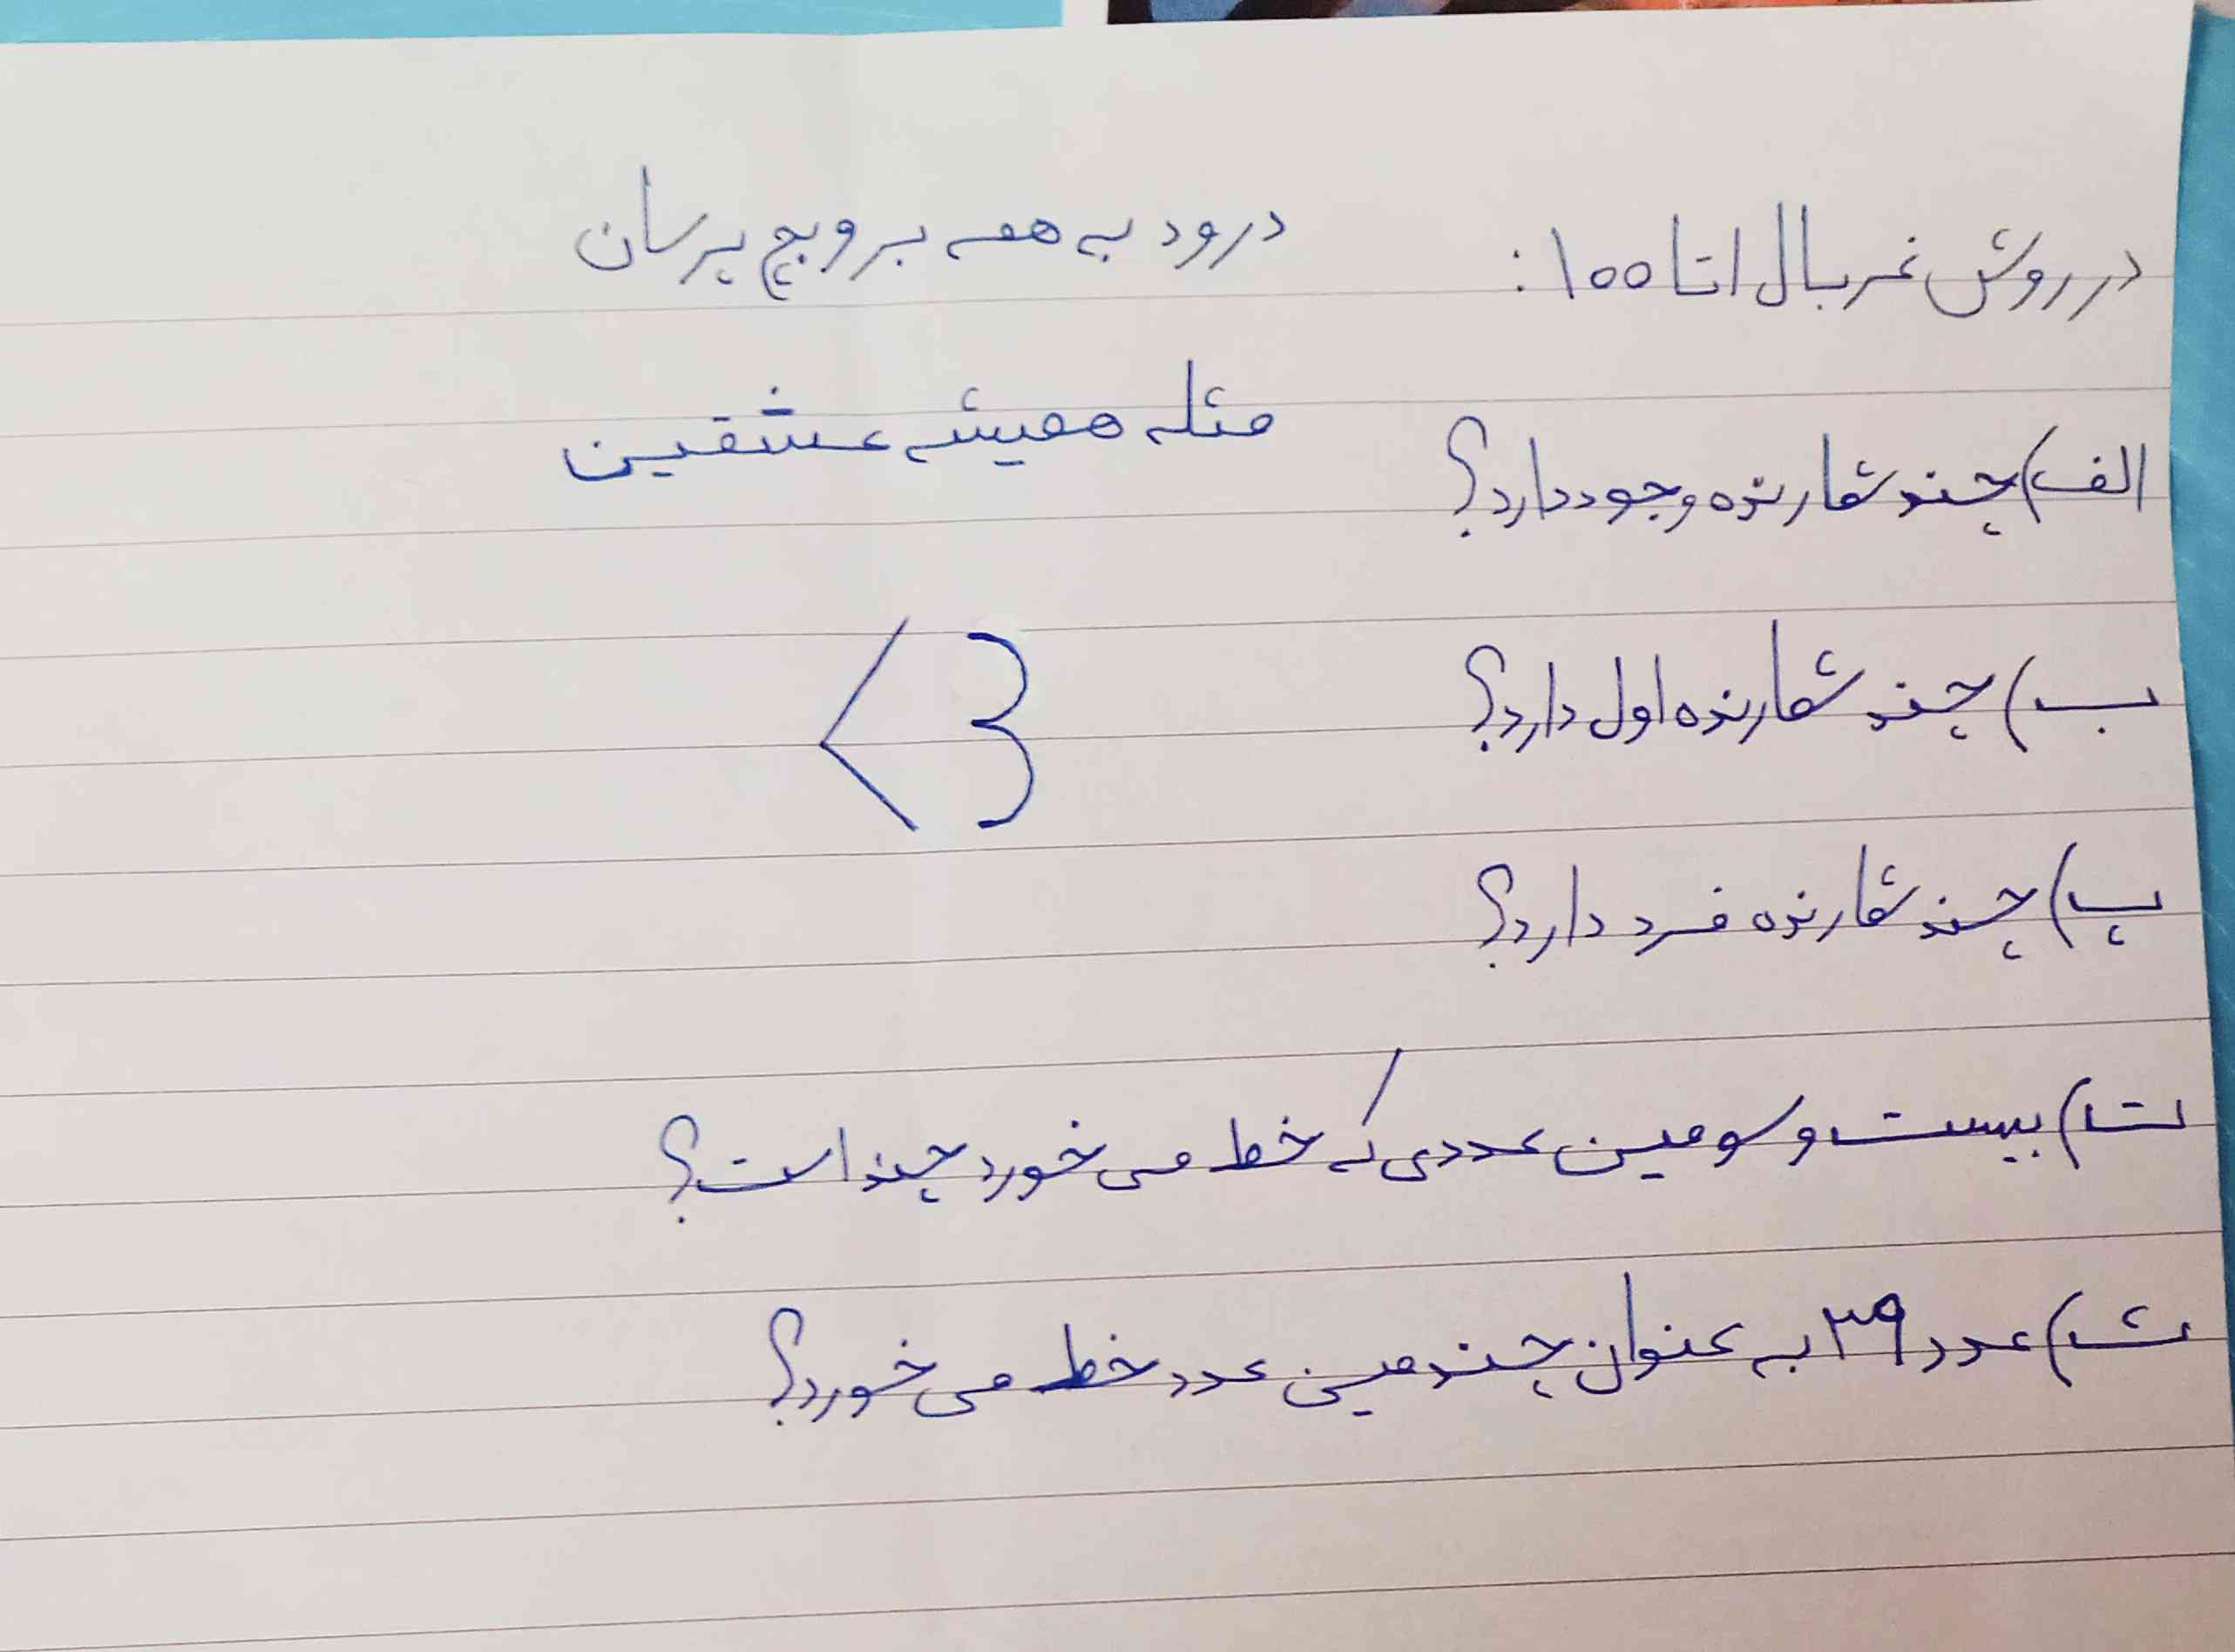 در روش غربال ۱ تا ۱۰۰:
درود به همه بروبچ پرسان
الف) چند شمارنده وجود دارد؟
مثله همیشه عشقین
ب) چند شمارنده اول دارد؟
<3
پ) چند شمارنده فرد دارد؟
ت) بیست و سومین عددی که خط می خورد چند است؟
ث) عدد ۳۹ به عنوان چندمین عدد خط می خورد؟